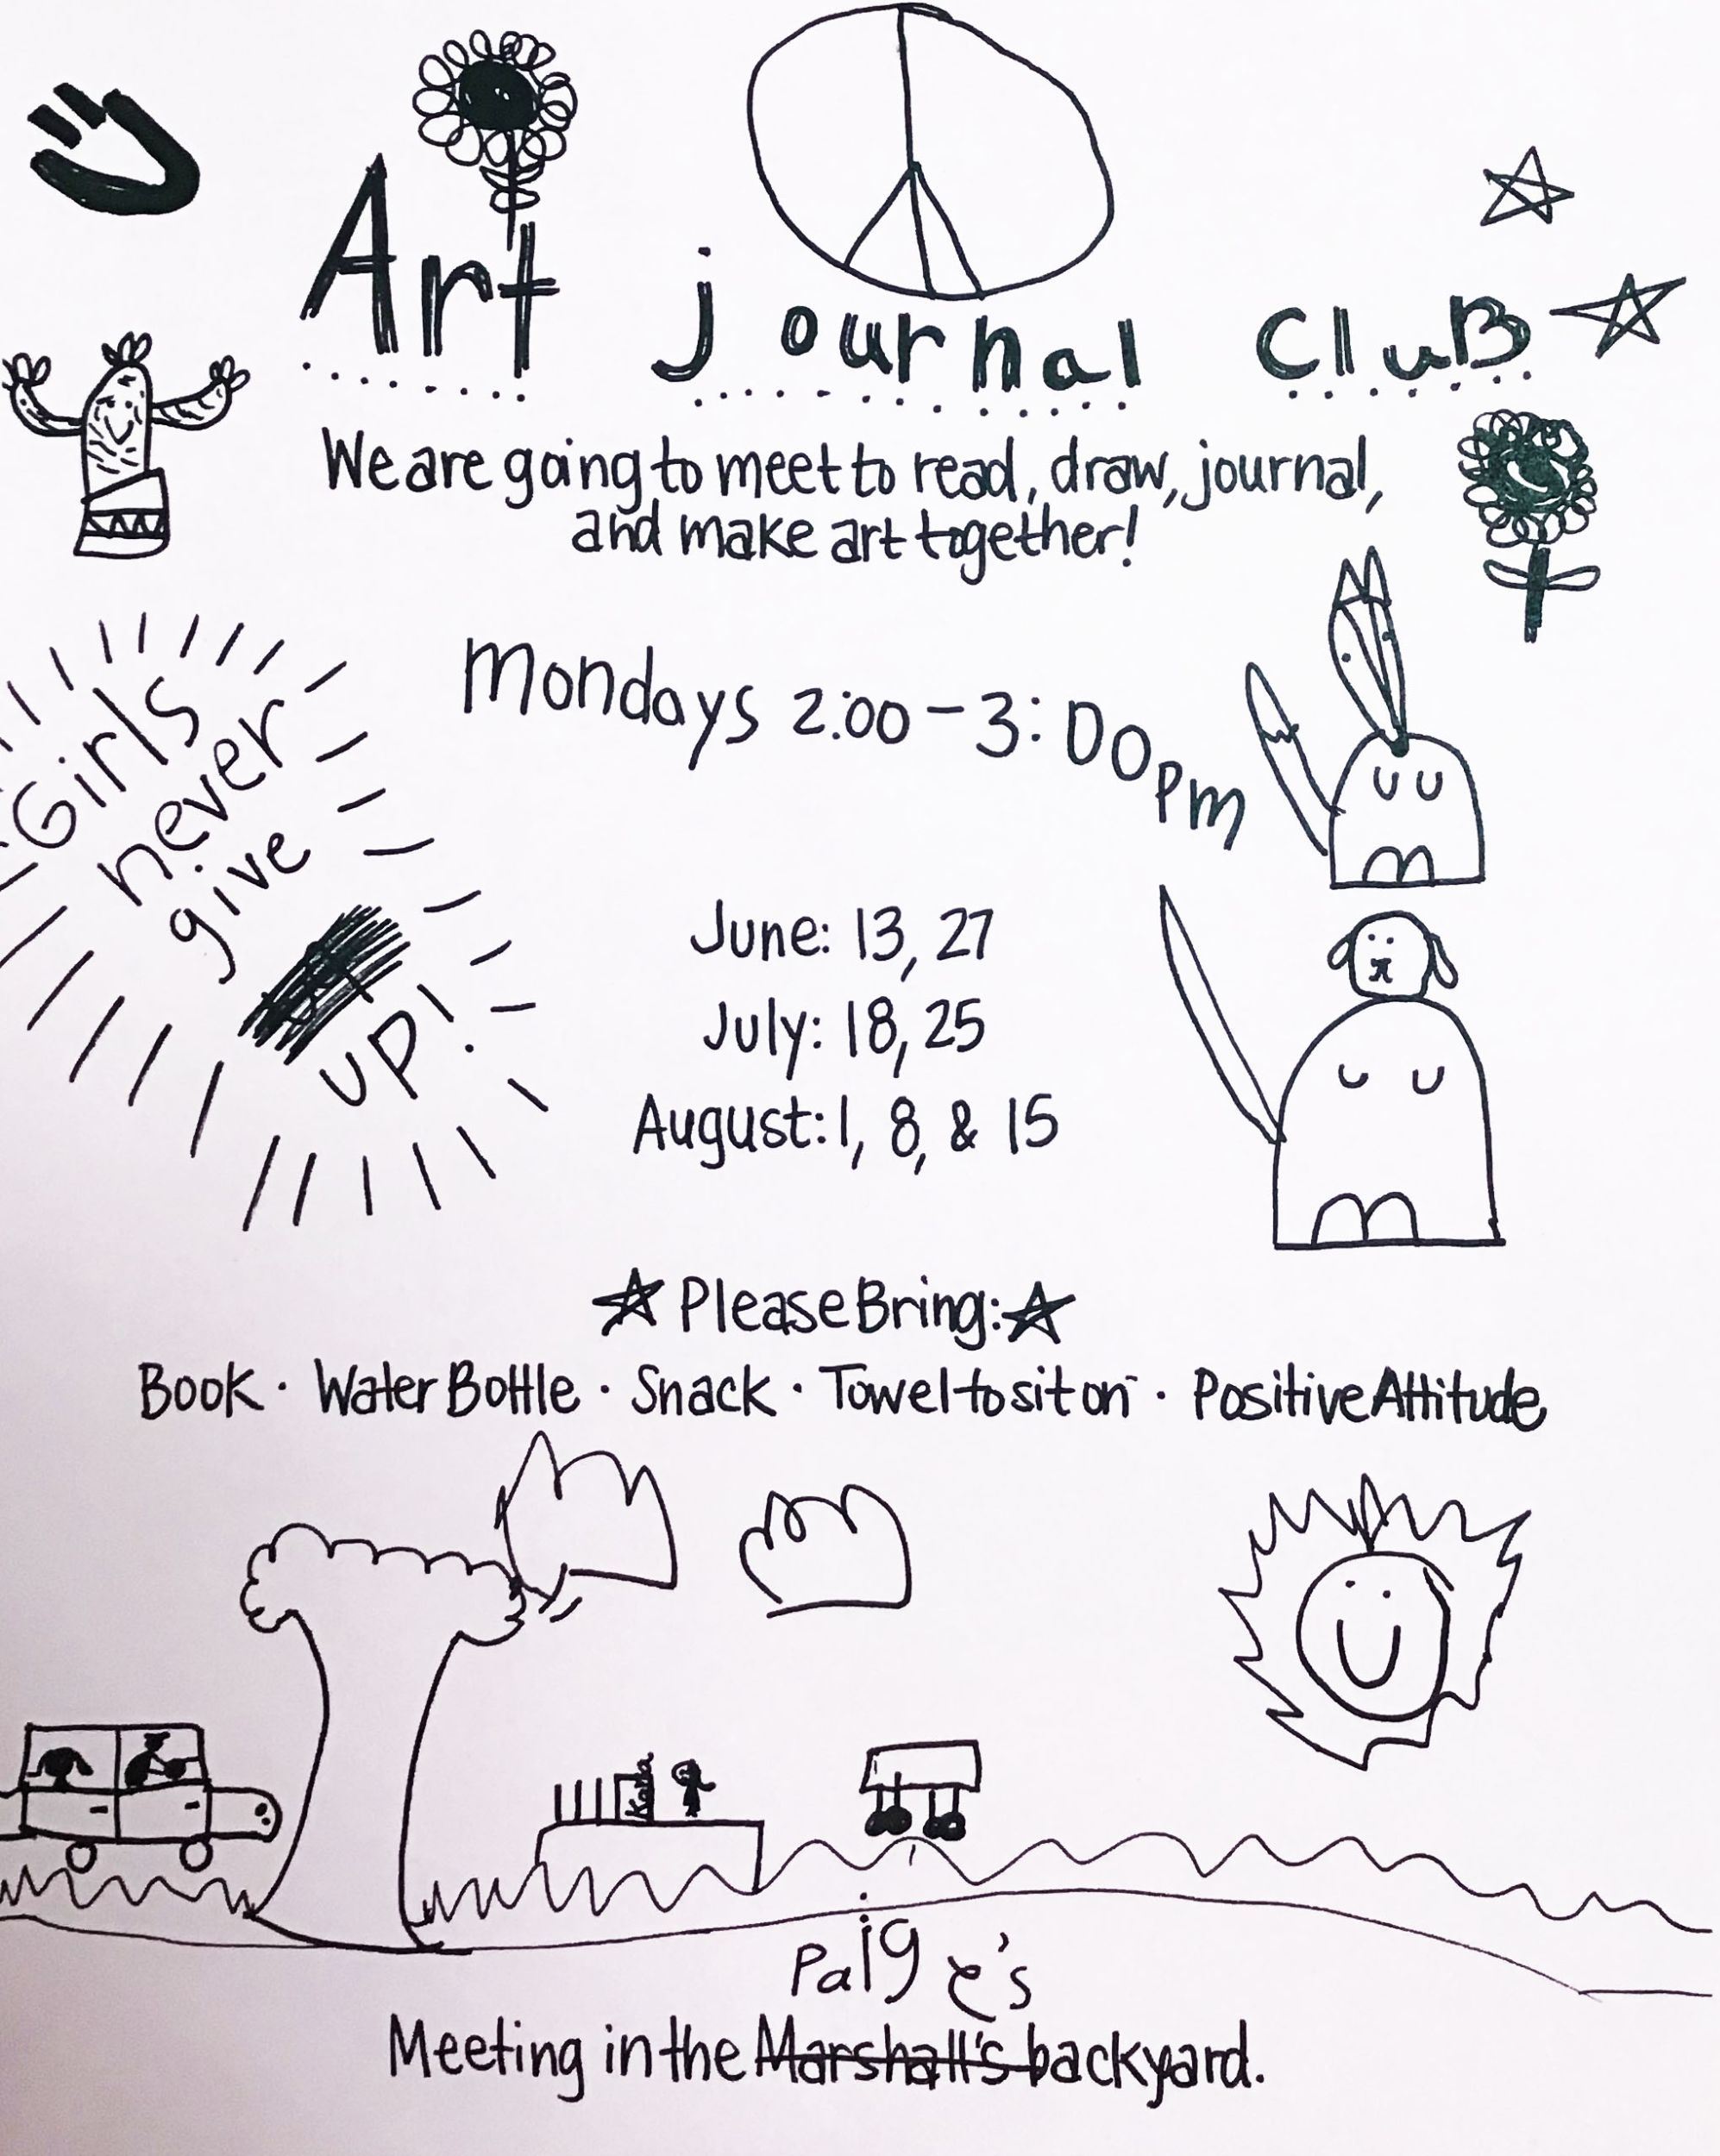 Art journal cluB
We are going to meet to read, draw, journal,
and make art together!
Mondays 2:00-3:00pm
Girls
never
give
up!
June: 13, 27
July: 18, 25
August: 1, 8, & 15
Please Bring:
Book · Water Bottle · Snack · Towel to sit on · Positive Attitude
Paige's
Meeting in the Marshall's backyard.